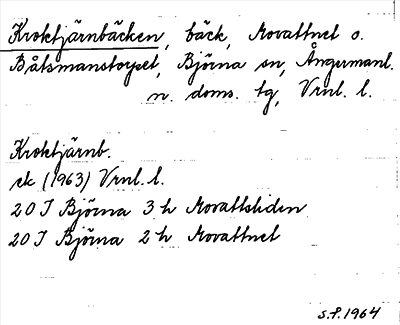 Kroktjärnbäcken, bäck, Movattnet o.
Båtsmanstorpet, Björna sn, Ångermanl.
n. doms. tg, Vrnl. l.
Kroktjärnb.
ek (1963) Vrnl. l.
20 J Björna 3 h Movattsliden
20 J Björna 2 h Movattnet
S.P. 1964